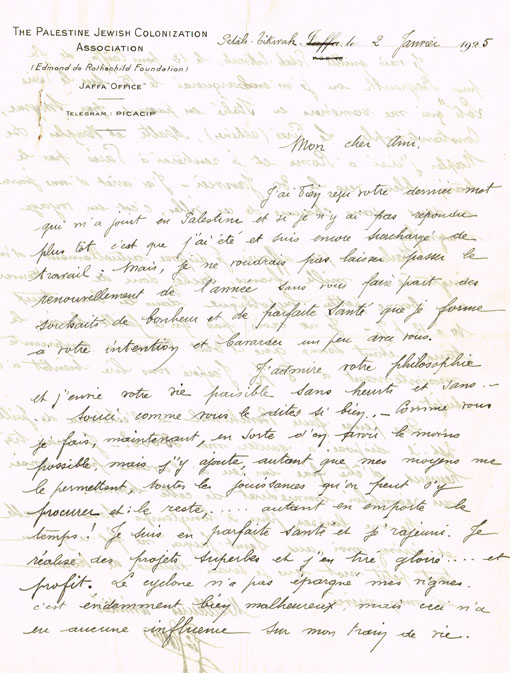 THE PALESTINE JEWISH COLONIZATION
ASSOCIATION
(Edmond de Rothschild Foundation)
JAFFA OFFICE
TELEGRAM: PICACIP
Petah-Tikvah, Jaffa, le 2 Janvier 1925
Mon cher Ami.
J'ai bien reçu votre dernier mot
qui m'a joint en Palestine et si je n'y ai pas répondu
plus tôt c'est que j'ai été et suis encore surchargé de
travail: Mais, je ne voudrais pas laisser passer le
renouvellement de l'année sans vous faire part des
souhaits de bonheur et de parfaite santé que je forme
à votre intention et bavarder un peu avec vous.
J'admire votre philosophie
et j'envie votre vie paisible sans heurts et sans -
souci comme vous le dites si bien. - Comme vous
je fais, maintenant, en sorte d'en avoir le moins
possible, mais j'y ajoute, autant que mes moyens me
le permettent, toutes les jouissances qu'on peut s'y
procurer et le reste, ..... autant en emporte le
temps! Je suis en parfaite santé et je rajeuni. Je
réalise des projets superbes et j'en tire gloire ..... et
profit. Le cyclone n'a pas épargné mes vignes.
c'est évidemment bien malheureux mais ceci n'a
eu aucune influence sur mon train de vie.